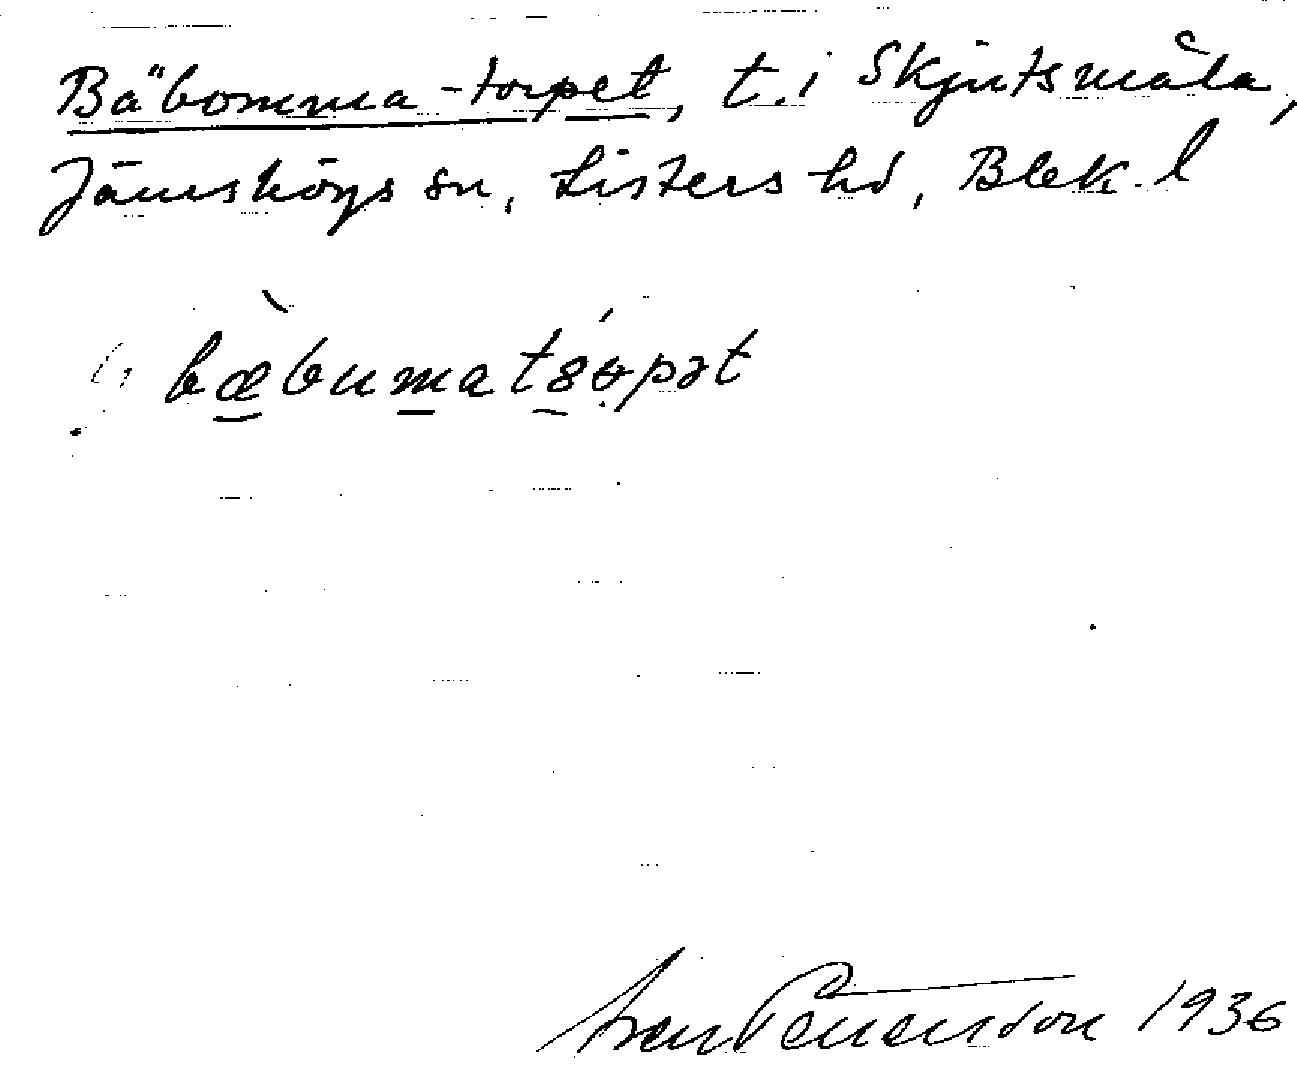 Bäbomma-torpet, t. i Skjutsmåla,
Jämshögs sn, Listers hd, Blek. l
bæbumat
1936